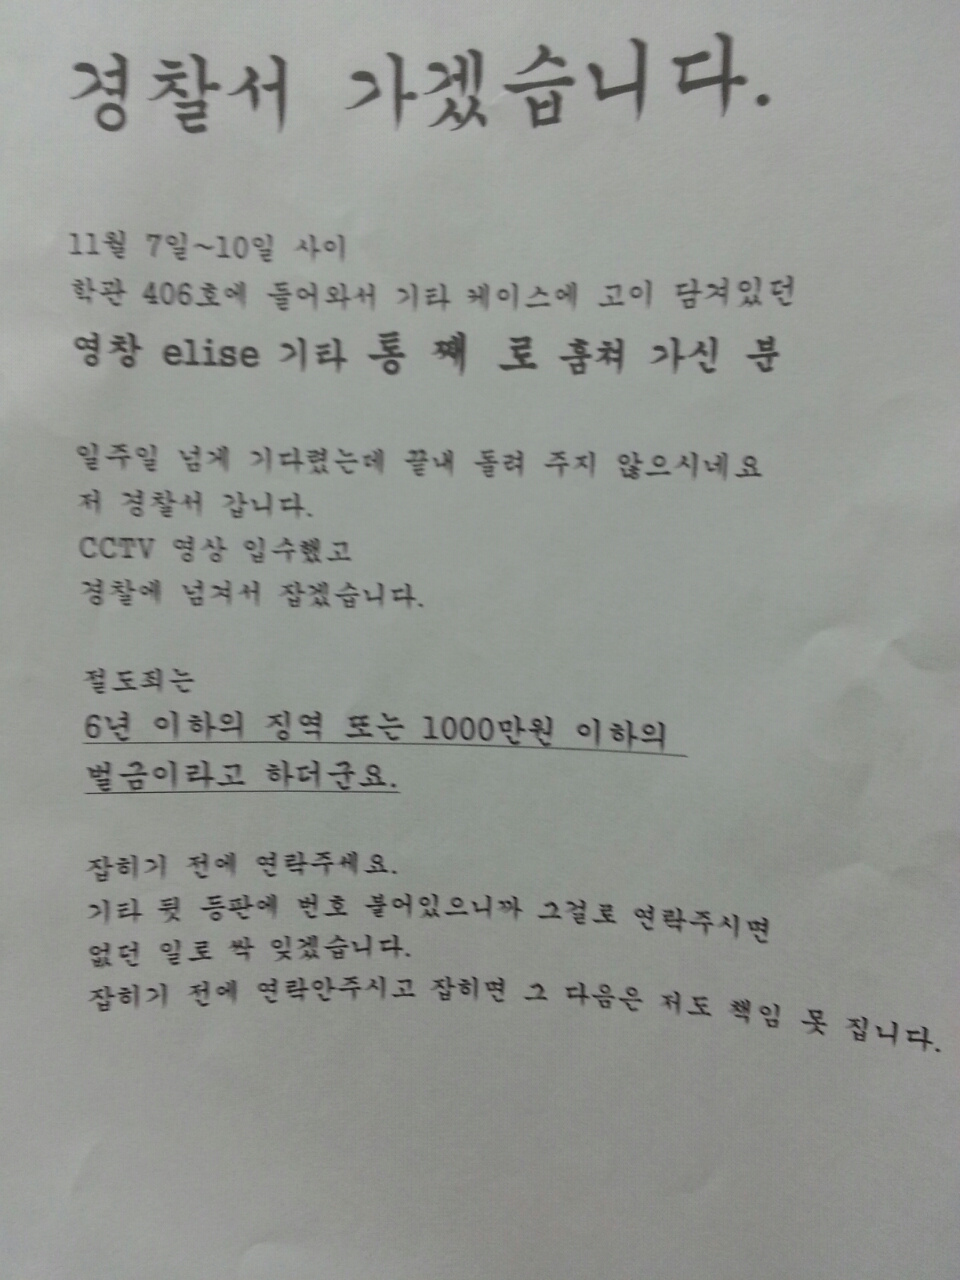 경찰서 가겠습니다.
11월 7일~10일 사이
학관 406호에 들어와서 기타 케이스에 고이 담겨있던
영창 elise 기타 통 째 로 훔쳐 가신 분
일주일 넘게 기다렸는데 끝내 돌려 주지 않으시네요
저 경찰서 갑니다.
CCTV 영상 입수했고
경찰에 넘겨서 잡겠습니다.
절도죄는
6년 이하의 징역 또는 1000만원 이하의
벌금이라고 하더군요.
잡히기 전에 연락주세요.
기타 뒷 등판에 번호 붙어있으니까 그걸로 연락주시면
없던 일로 싹 잊겠습니다.
잡히기 전에 연락안주시고 잡히면 그 다음은 저도 책임 못 집니다.